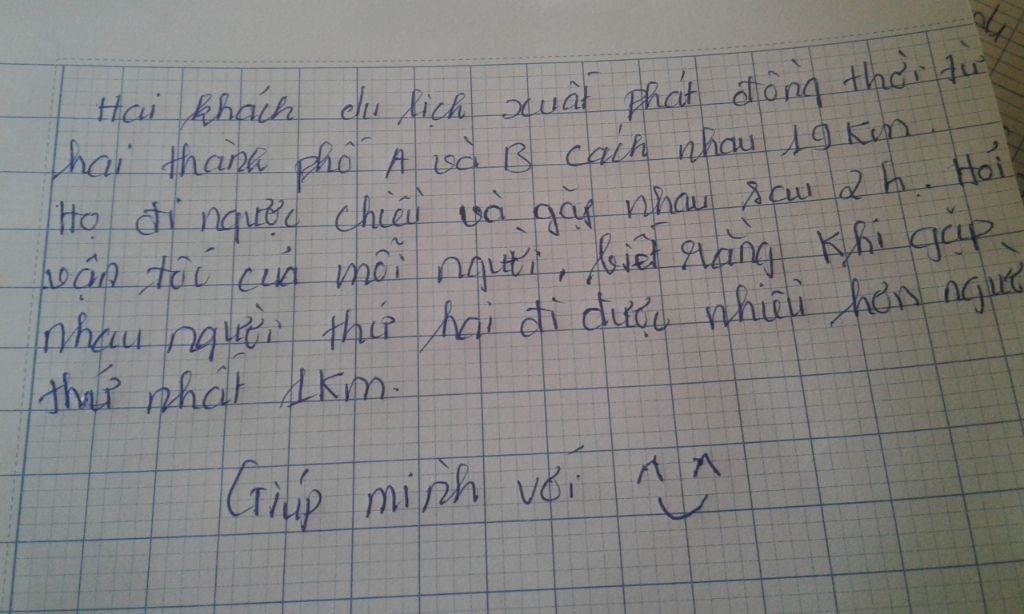 Hai khách du lịch xuất phát đồng thời từ
hai thành phố A và B cách nhau 19 Km
Họ đi ngược chiều và gặp nhau sau 2 h. Hỏi
vận tốc của mỗi người, biết rằng Khi gặp
nhau người thứ hai đi được nhiều hơn người
thứ nhất 1Km.
Giúp mình với ^ ^